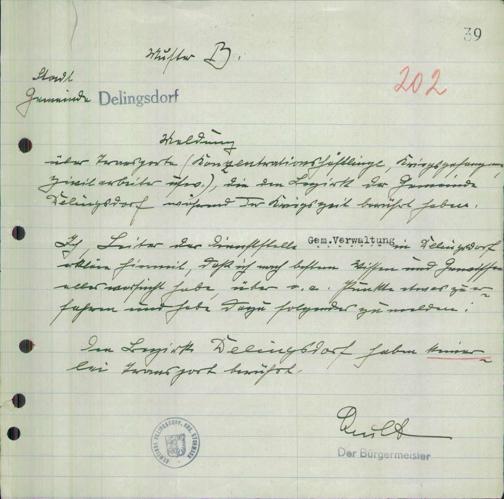 39
Muster B.
202
Stadt
Gemeinde Delingsdorf
Meldung
über Transporte (Konzentrationshäftlinge, Kriegsgefangene,
Zivilarbeiter usw.), die den Bezirk der Gemeinde
Delingsdorf während der Kriegszeit berührt haben.
Ich, Leiter der Dienststelle Gem.Verwaltung in Delingsdorf
erkläre hiermit, daß ich nach bestem Wissen und Gewissen
alles versucht habe, über o.a. Punkte etwas zu er-
fahren und habe dazu folgendes zu melden:
Den Bezirk Delingsdorf haben keiner-
lei Transport berührt.
Der Bürgermeister